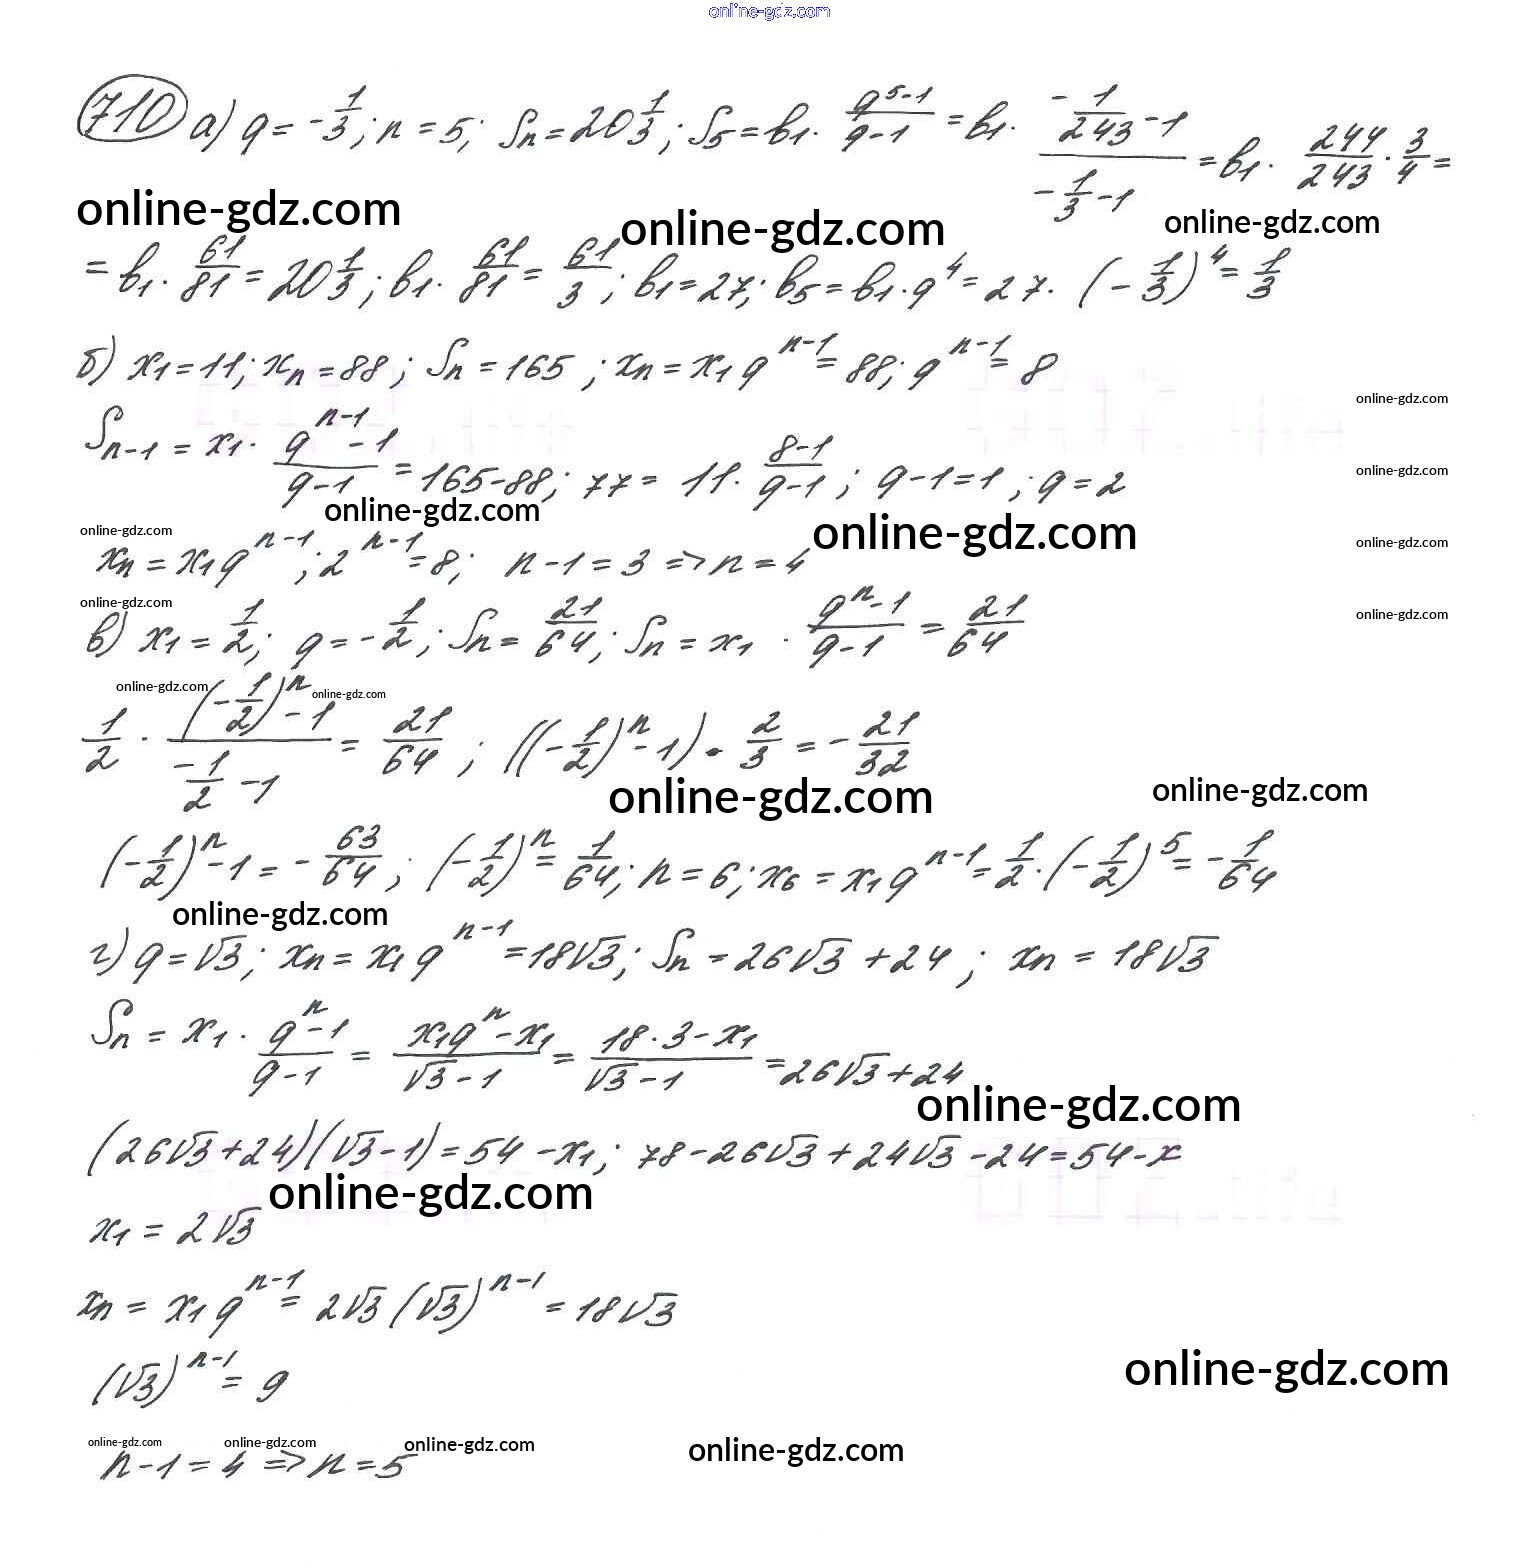 online-gdz.com
710 а) q = -1/3; n = 5; Sn = 20 1/3; S5 = b1 · (q^5-1)/(q-1) = b1 · (-1/243 -1)/(-1/3 -1) = b1 · 244/243 · 3/4 =
online-gdz.com online-gdz.com online-gdz.com
= b1 · 61/81 = 20 1/3; b1 · 61/81 = 61/3; b1 = 27; b5 = b1 · q^4 = 27 · (-1/3)^4 = 1/3
б) x1 = 11; xn = 88; Sn = 165; xn = x1 q^(n-1) = 88; q^(n-1) = 8
online-gdz.com
S(n-1) = x1 · (q^(n-1) -1)/(q-1) = 165-88; 77 = 11 · (8-1)/(q-1); q-1 = 1; q = 2
online-gdz.com
online-gdz.com online-gdz.com
online-gdz.com online-gdz.com
xn = x1 q^(n-1); 2^(n-1) = 8; n-1 = 3 => n = 4
online-gdz.com online-gdz.com
в) x1 = 1/2; q = -1/2; Sn = 21/64; Sn = x1 · (q^n -1)/(q-1) = 21/64
online-gdz.com online-gdz.com
1/2 · ((-1/2)^n -1)/(-1/2 -1) = 21/64; ((-1/2)^n -1) · 2/3 = -21/32
online-gdz.com online-gdz.com
(-1/2)^n -1 = -63/64; (-1/2)^n = 1/64; n = 6; x6 = x1 q^(n-1) = 1/2 · (-1/2)^5 = -1/64
online-gdz.com
г) q = √3; xn = x1 q^(n-1) = 18√3; Sn = 26√3 + 24; xn = 18√3
Sn = x1 · (q^n -1)/(q-1) = (x1 q^n - x1)/(√3 -1) = (18 · 3 - x1)/(√3 -1) = 26√3 + 24
online-gdz.com
(26√3 + 24)(√3 -1) = 54 - x1; 78 - 26√3 + 24√3 - 24 = 54 - x
online-gdz.com
x1 = 2√3
xn = x1 q^(n-1) = 2√3 (√3)^(n-1) = 18√3
online-gdz.com
(√3)^(n-1) = 9
online-gdz.com online-gdz.com online-gdz.com online-gdz.com
n-1 = 4 => n = 5